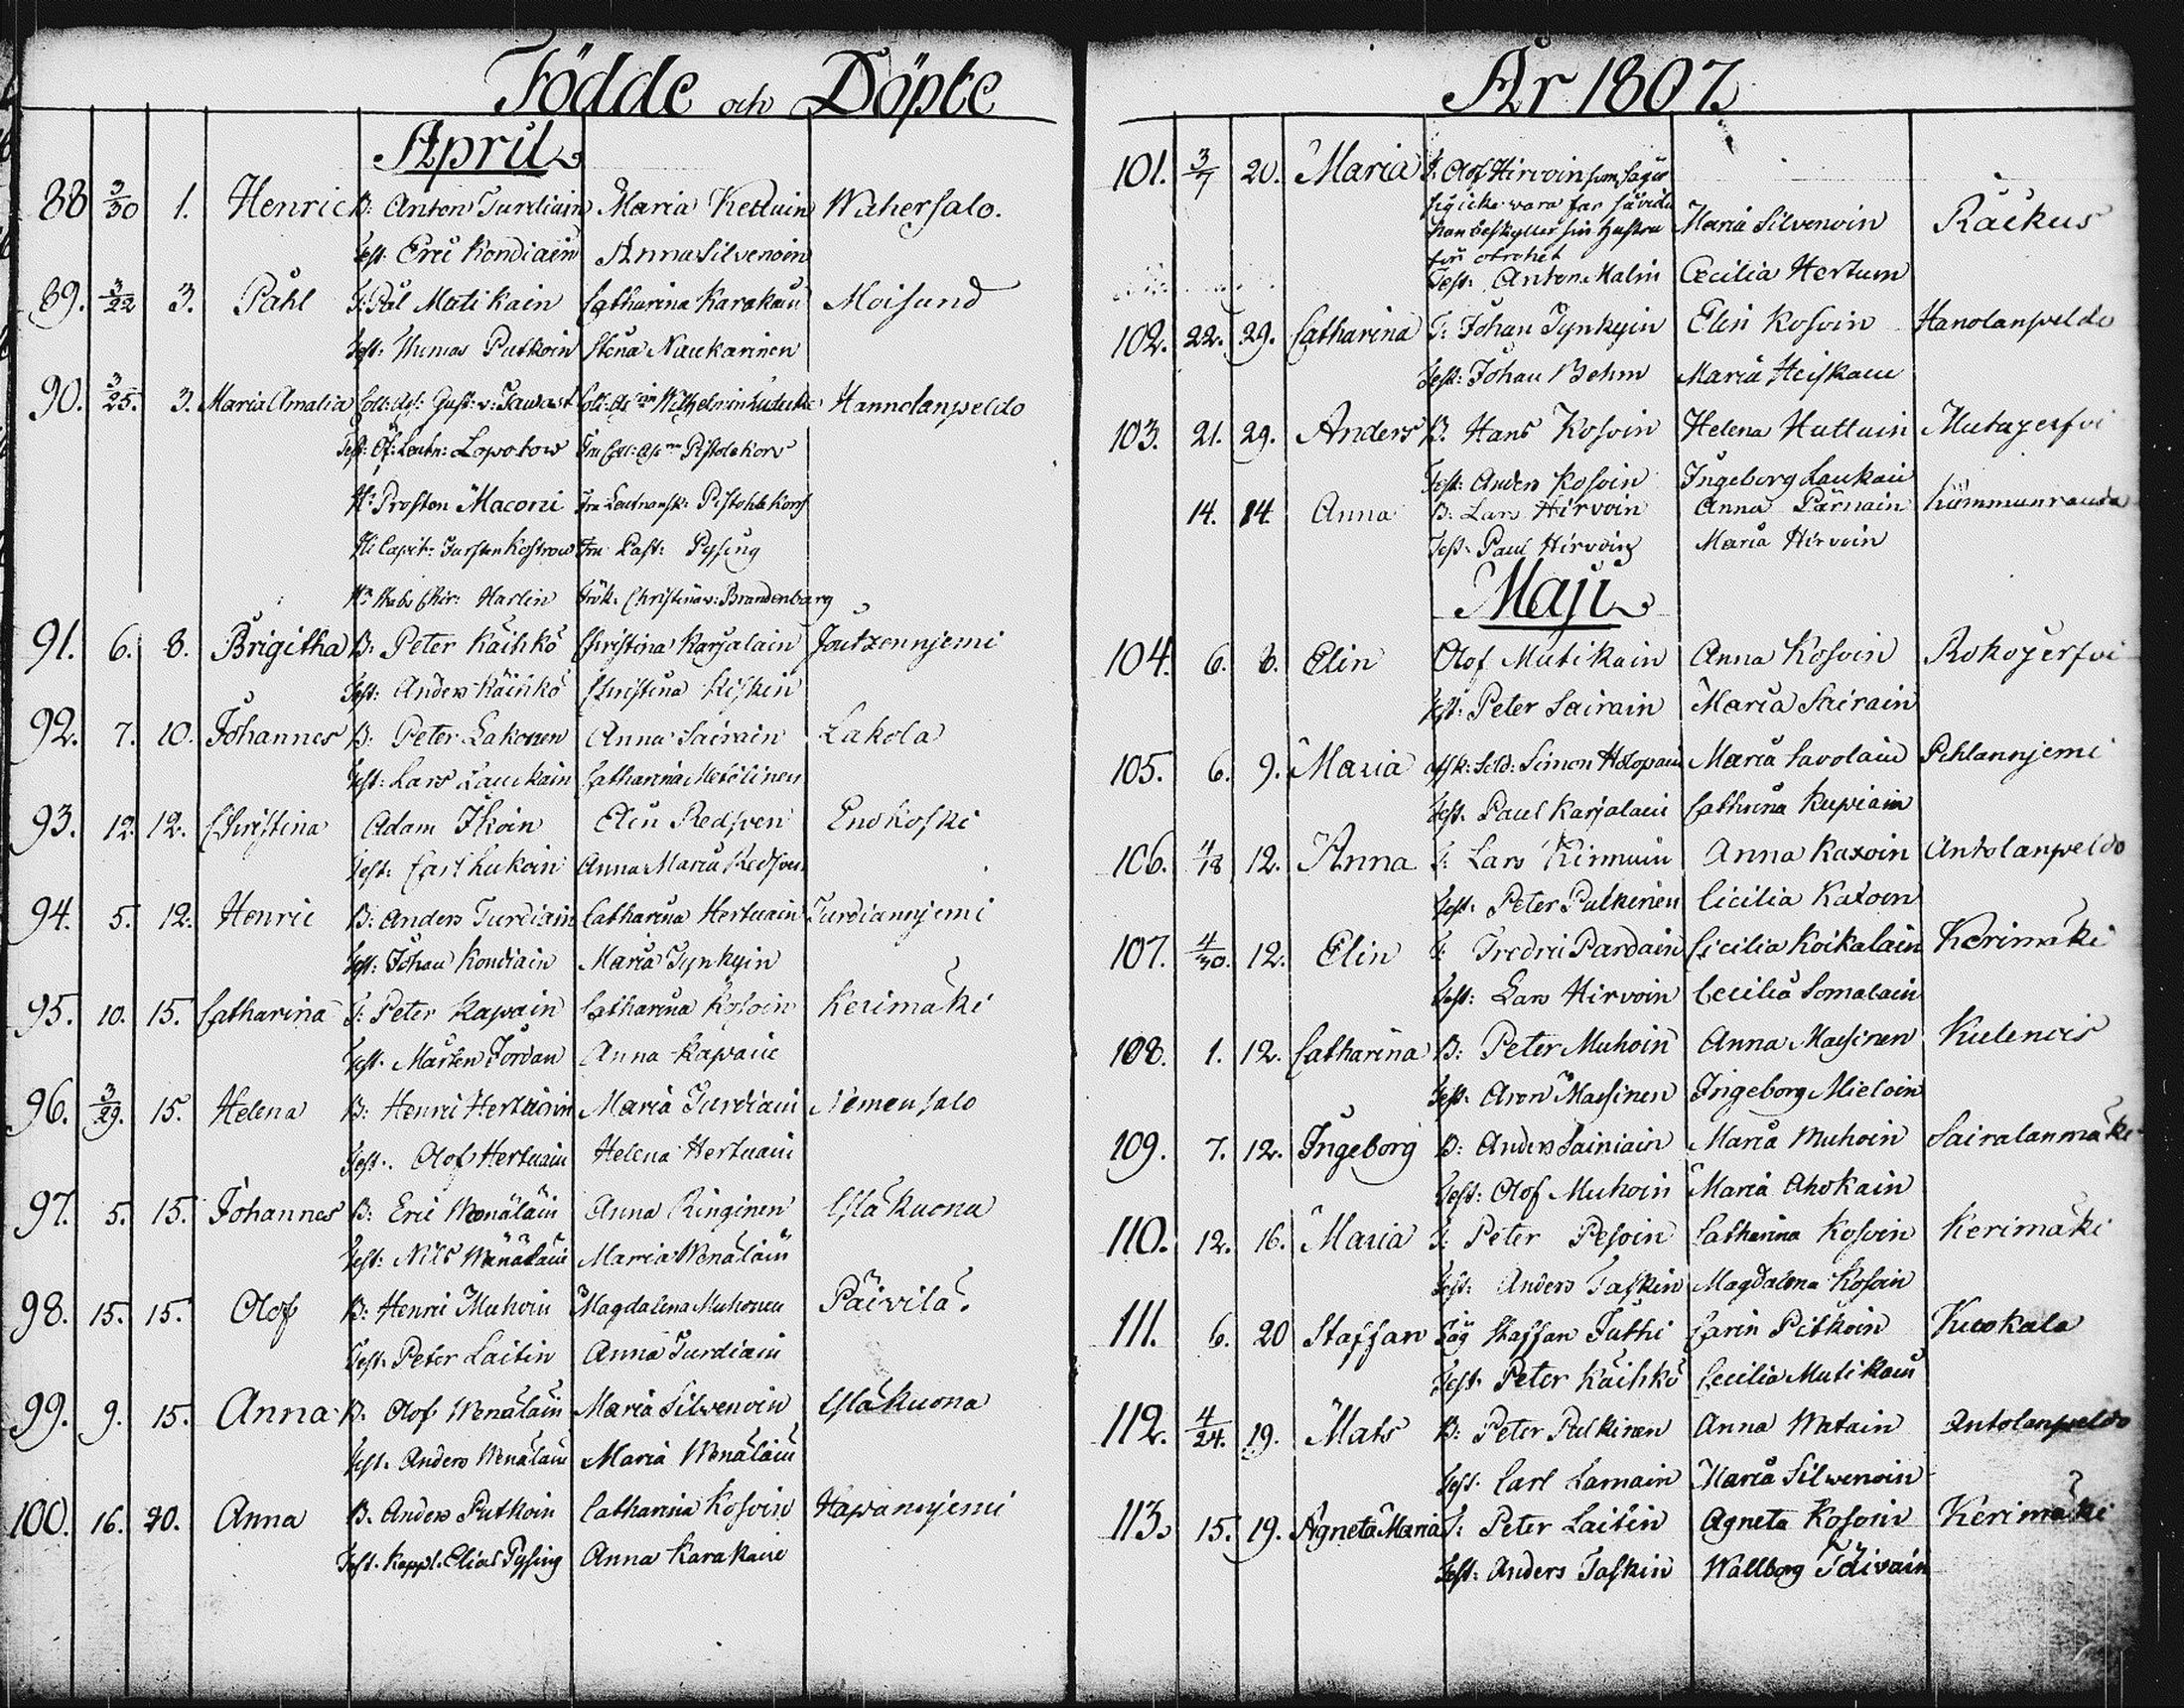 Födde och Döpte
April
88 3/30 1. Henric B: Anton Turdiain Maria Kettuin Wihersalo.
Test: Eric Kondiain Anna Silvenoin
89. 3/22 3. Påhl T: Pål Matikain Catharina Karakain Moisund
Test: Thomas Putkoin Stina Naukarinen
90. 3/25. 3. Maria Amalia Coll: As: Gust: v: Tawast Hannolanpeldo
Test: Of: Leutn: Lopotow Fru Coll: Pistolekors
Hr Prosten Maconi Fru Pistohlekors
Hr Capit: Kostrow Fru Past: Pysing
Hr Stabs Chir: Harlin Frök. Christina v: Brandenburg
91. 6. 8. Brigitha B: Peter Käihkö Christina Karjalain Joutzennjemi
Test: Anders Käihkö Christina Kiskin
92. 7. 10. Johannes B: Peter Lakonen Anna Sairain Lakola
Test: Lars Laukain Catharina Metelinen
93. 12. 12. Christina Adam Ikoin Elin Redsven Enokoski
Test: Carl Lukoin Anna Maria Redsven
94. 5. 12. Henric B: Anders Turdiain Catharina Hertuain Turdiannjemi
Test: Johan Kondiain Maria Tynkyin
95. 10. 15. Catharina T: Peter Kapain Catharina Kosoin Kerimäki
Test. Mårten Jordan Anna Kapain
96. 3/29. 15. Helena B: Henric Hertuain Maria Turdiain Niemensalo
Test. Olof Hertuain Helena Hertuain
97. 5. 15. Johannes B: Eric Wenäläin Anna Ringinen Yläkuona
Test: Nils Wenäläin Maria Wenäläin
98. 15. 15. Olof B: Henric Muhoin Magdalena Muhonen Päivilä.
Test. Peter Laitin Anna Turdiain
99. 9. 15. Anna B. Olof Wenäläin Maria Silvenoin Yläkuona
Test. Anders Wenäläin Maria Wenäläin
100. 16. 20. Anna B. Anders Putkoin Catharina Kosoin Hapannjemi
Test. Kappl. Elias Pysing Anna Karakain
År 1807.
101. 3/7 20. Maria T. Olof Hirvoin som säger
sig icke vara far såvida
han beskyller sin hustru Maria Silvenoin Räckus
för otrohet
Test: Anton Malin Cecilia Hertuin
102. 22. 29. Catharina T: Johan Tynkyin Elin Kosoin Hanolanpeldo
Test: Johan Behm Maria Heiskain
103. 21. 29. Anders B. Hans Kosoin Helena Huttuin Mutajerfvi
Test: Anders Kosoin Ingeborg Laukain
14. 14. Anna B: Lars Hirvoin Anna Pärnain Kummunranda
Test. Paul Hirvoin Maria Hirvoin
Maji
104. 6. 8. Elin Olof Mutikain Anna Kosoin Rokojerfvi
Test: Peter Sairain Maria Sairain
105. 6. 9. Maria afsk: Sold: Simon Holopain Maria Savolain Pehlannjemi
Test. Paul Karjalain Catharina Kupiain
106. 4/18 12. Anna T: Lars Kinnuin Anna Kaxoin Antolanpeldo
Test. Peter Pulkinen Cicilia Kaxoin
107. 4/30. 12. Elin T: Fredric Pardain Cicilia Koikalain Kerimäki
Test: Lars Hirvoin Cecilia Somalain
108. 1. 12. Catharina B: Peter Muhoin Anna Maisinen Kulencis
Test. Aron Maisinen Ingeborg Mieloin
109. 7. 12. Ingeborg B: Anders Sainiain Maria Muhoin Sairalanmäki
Test: Olof Muhoin Maria Ahokain
110. 12. 16. Maria T: Peter Pesoin Catharina Kosoin Kerimäki
Test: Anders Taskin Magdalena Kosoin
111. 6. 20 Staffan Staffan Tuthi Carin Pitkoin Kuokala
Test. Peter Käihkö Cecilia Mutikain
112. 4/24. 19. Mats B: Peter Pulkinen Anna Matain Antolanpeldo
Test. Carl Lamain Maria Silwenoin
113. 15. 19. Agneta Maria T: Peter Laitin Agneta Kosoin Kerimäki
Test: Anders Taskin Wallborg Toivain